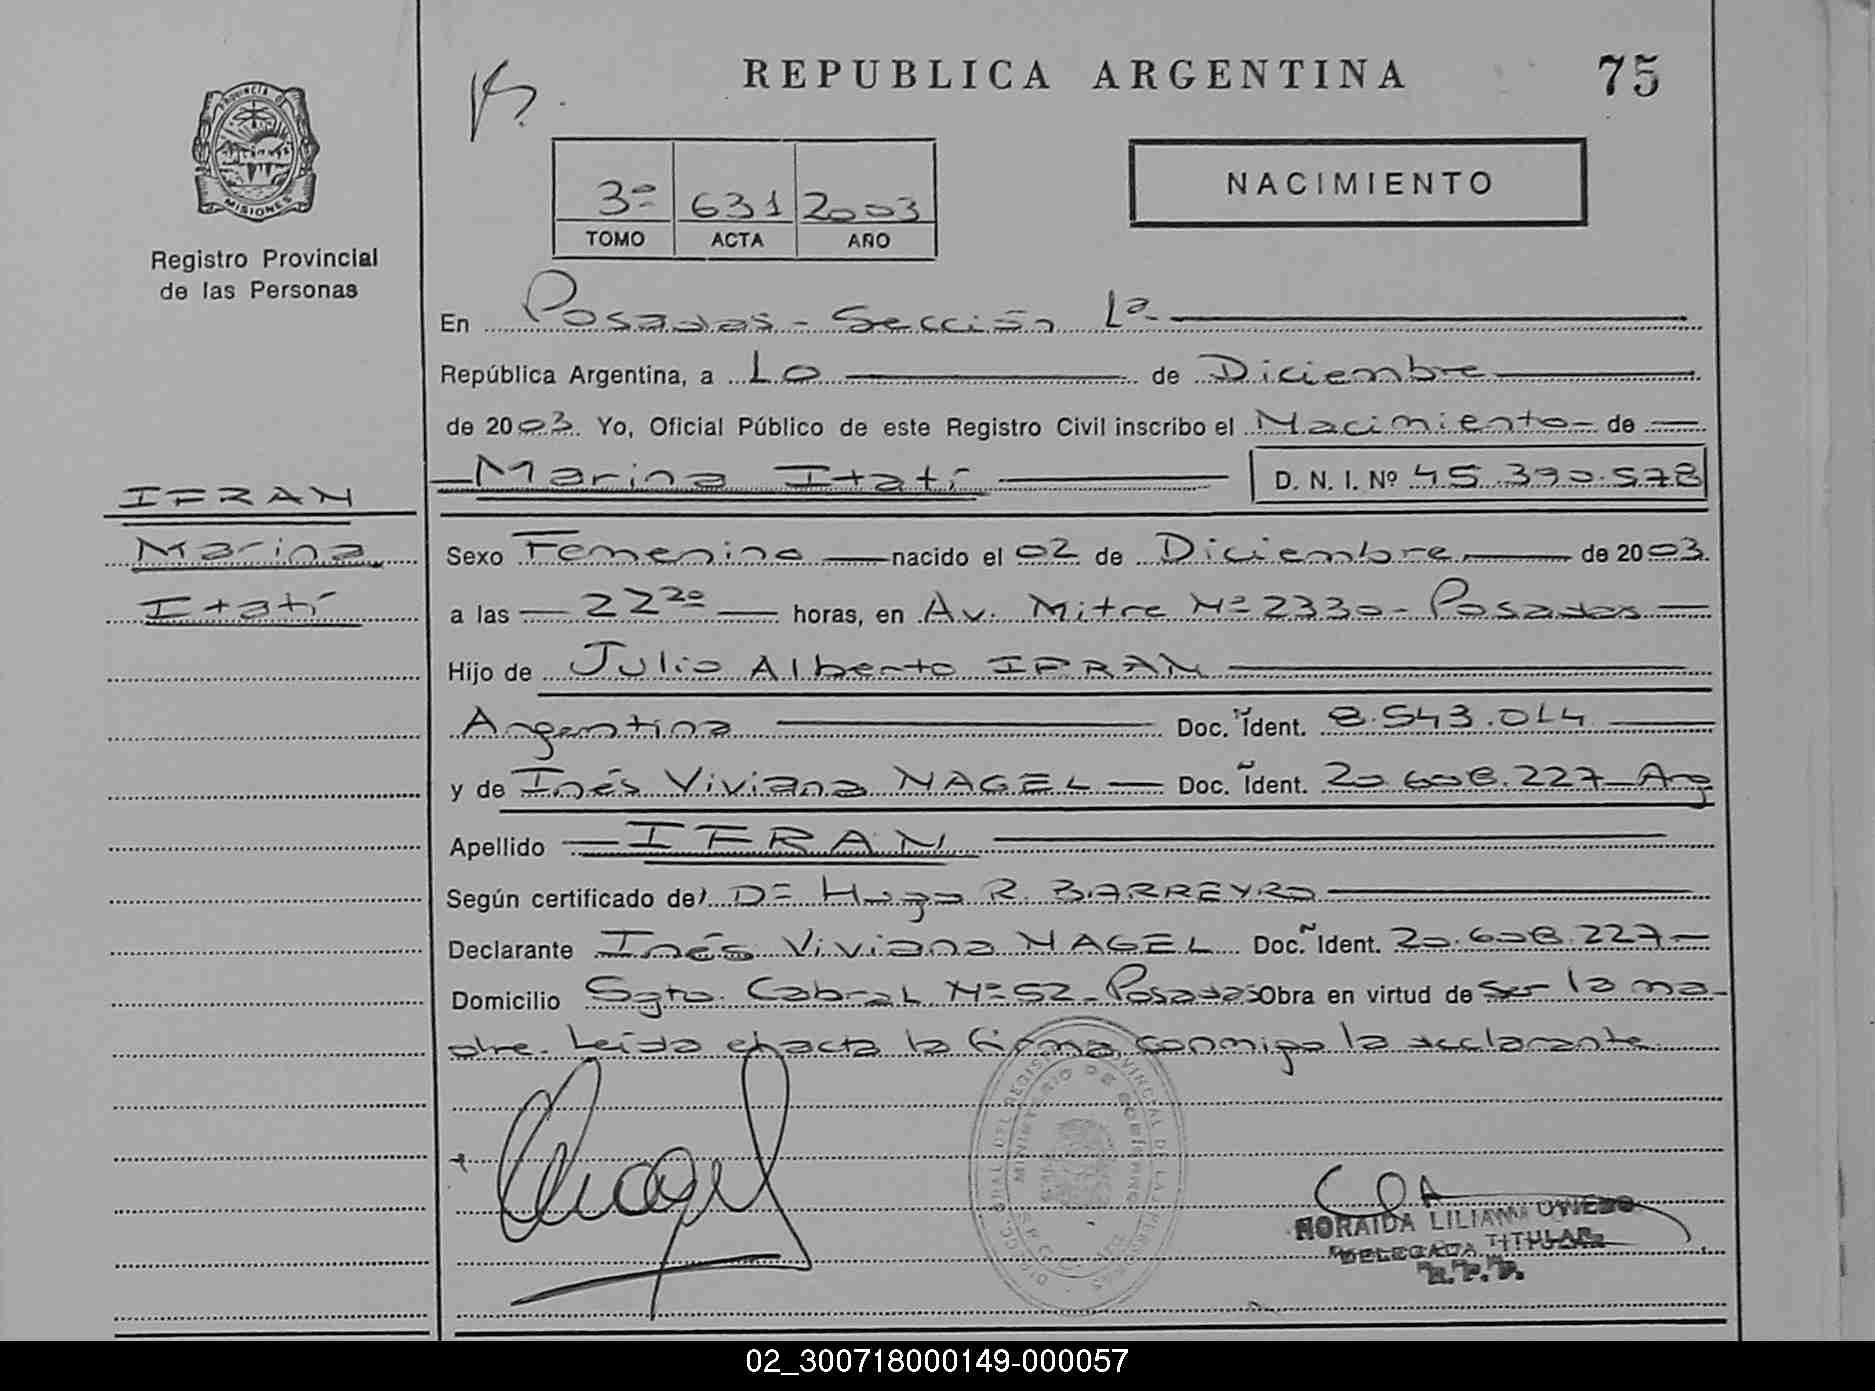 REPUBLICA ARGENTINA
75
PROVINCIA DE
MISIONES
Registro Provincial
de las Personas
3º 631 2003
TOMO ACTA AÑO
NACIMIENTO
En Posadas - Sección 1ª
República Argentina, a 10 de Diciembre
de 2003. Yo, Oficial Público de este Registro Civil inscribo el Nacimiento de
Marina Itatí D. N. I. Nº 45.390.578
IFRAN
Marina
Itatí
Sexo Femenino nacido el 02 de Diciembre de 2003.
a las 22 20 horas, en Av. Mitre Nº 2330 - Posadas
Hijo de Julio Alberto IFRAN
Argentina Doc. Ident. 8.543.014
y de Inés Viviana NAGEL Doc. Ident. 20.608.227 - Arg
Apellido IFRAN
Según certificado del Dº Hugo R. BARREYRO
Declarante Inés Viviana NAGEL Doc. Ident. 20.608.227
Domicilio Sgto. Cabral Nº 52 - Posadas Obra en virtud de ser la ma-
dre. Leída el acta la firma conmigo la declarante
MINISTERIO DE GOBIERNO
LILIANA
DELEGADA TITULAR
R.P.P.
02_300718000149-000057